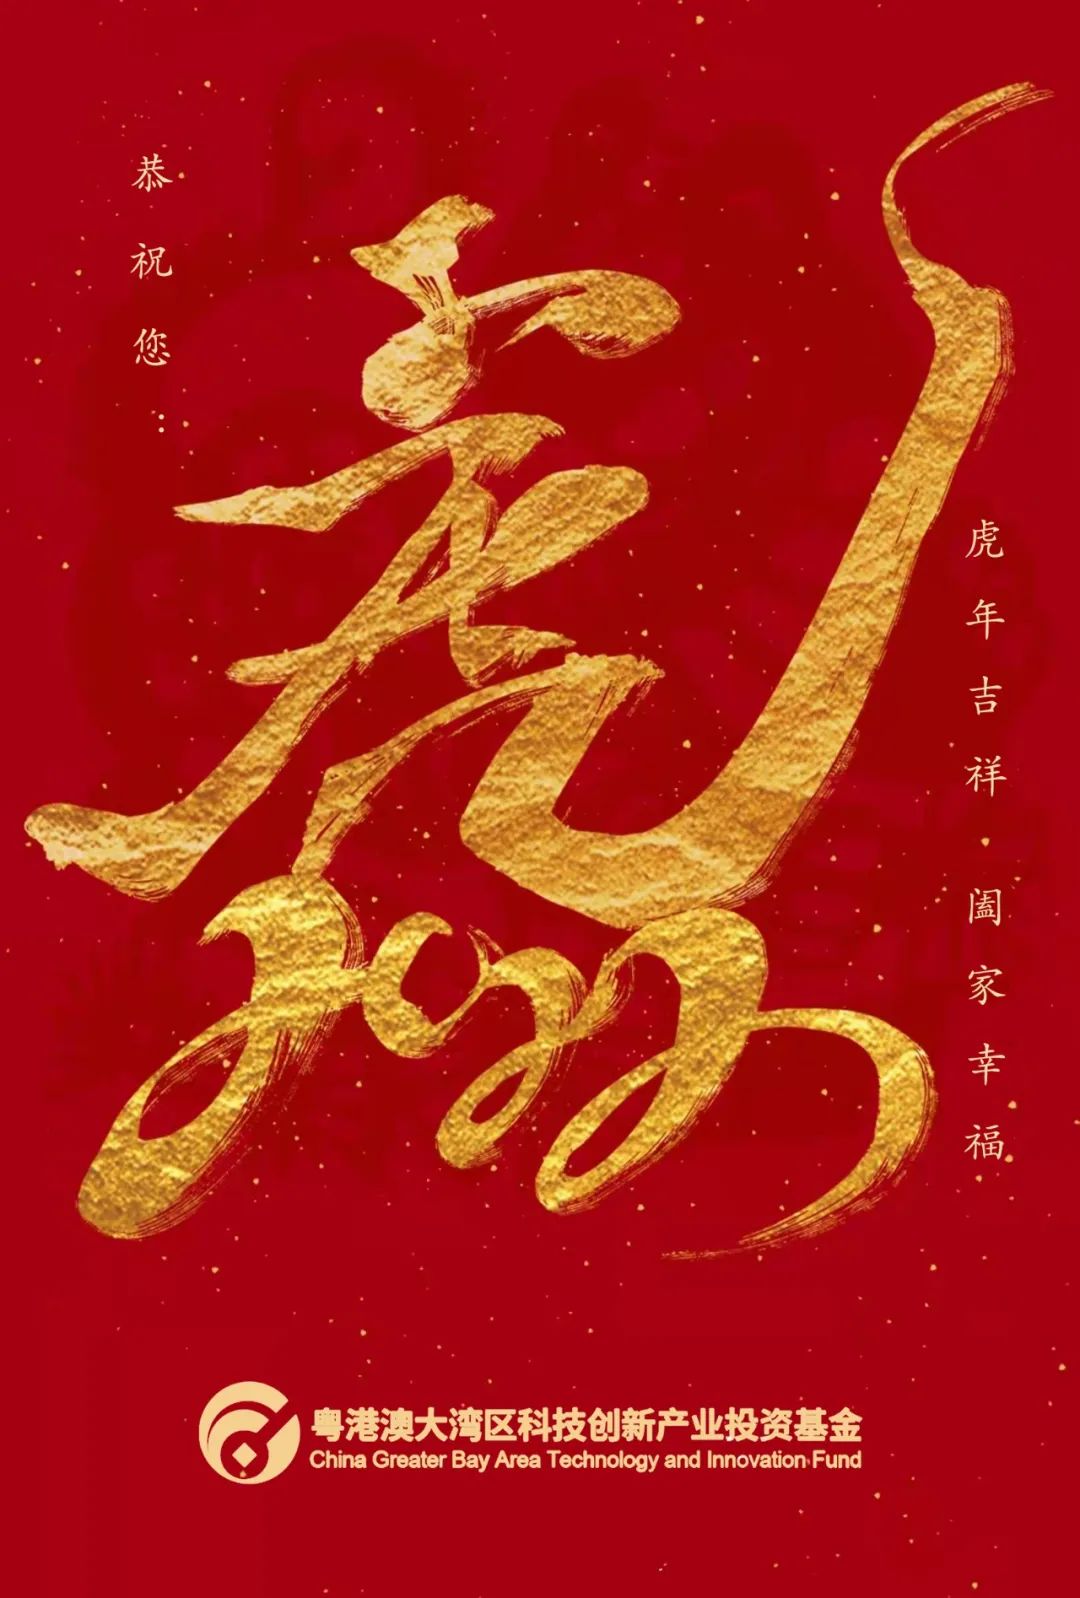 恭祝您：
虎
2022
虎年吉祥·阖家幸福
粤港澳大湾区科技创新产业投资基金
China Greater Bay Area Technology and Innovation Fund